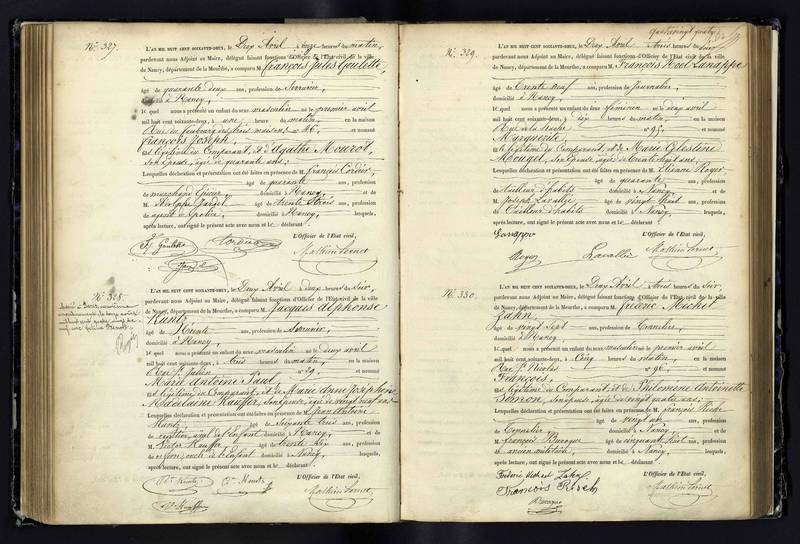 N.º 327.
L'AN MIL HUIT CENT SOIXANTE-DEUX, le Deux Avril à onze heures du matin,
pardevant nous Adjoint au Maire, délégué faisant fonctions d'Officier de l'Etat civil de la ville
de Nancy, département de la Meurthe, a comparu M. François Jules Goulette,
âgé de quarante deux ans, profession de Serrurier,
domicilié à Nancy,
lequel nous a présenté un enfant du sexe masculin né le premier avril
mil huit cent soixante-deux, à une heure du matin, en la maison
Rue du faubourg des trois maisons, n.º 46, et nommé
François Joseph,
fils légitime du Comparant, et d'Agathe Mourot,
son épouse, âgée de quarante ans;
Lesquelles déclaration et présentation ont été faites en présence de M. François Cordier,
âgé de quarante ans, profession
de marchand épicier, domicilié à Nancy, et de
M. Adolphe Jardel âgé de trente trois ans, profession
de agent de police, domicilié à Nancy, lesquels,
après lecture, ont signé le présent acte avec nous et le déclarant.
L'Officier de l'Etat civil,
Jf. Goulette Cordier
Mathieu Cornet
Jardel
N.º 328.
L'AN MIL HUIT CENT SOIXANTE-DEUX, le Deux Avril à deux heures du Soir,
pardevant nous Adjoint au Maire, délégué faisant fonctions d'Officier de l'Etat civil de la ville
de Nancy, département de la Meurthe, a comparu M. Jacques Alphonse
Kuntz
âgé de Trente ans, profession de Serrurier,
domicilié à Nancy,
lequel nous a présenté un enfant du sexe masculin né le deux avril
mil huit cent soixante-deux, à trois heures du matin, en la maison
Rue St. Julien, n.º 29, et nommé
Marie Antoine Paul,
fils légitime du Comparant, et de Marie Anne Josephine
Madelaine Kauffer, son épouse, âgée de vingt neuf ans
Lesquelles déclaration et présentation ont été faites en présence de M. Jean Antoine
Kuntz âgé de Soixante trois ans, profession
de rentier, ayeul de l'Enfant domicilié à Nancy, et de
M. Victor Kauffer âgé de trente six ans, profession
de orfèvre, oncle de l'Enfant domicilié à Nancy, lesquels,
après lecture, ont signé le présent acte avec nous et le déclarant.
L'Officier de l'Etat civil,
Kuntz
Mathieu Cornet
Vr. Kauffer
N.º 329.
L'AN MIL HUIT CENT SOIXANTE-DEUX, le Deux Avril à trois heures du Soir,
pardevant nous Adjoint au Maire, délégué faisant fonctions d'Officier de l'Etat civil de la ville
de Nancy, département de la Meurthe, a comparu M. François Noel Lanappe
âgé de Trente neuf ans, profession de Journalier,
domicilié à Nancy,
lequel nous a présenté un enfant du sexe féminin né le deux avril
mil huit cent soixante-deux, à dix heures du matin, en la maison
n.º 95, et nommé
Marguerite,
fille légitime du Comparant, et de Marie Célestine
Mougel, son épouse, âgée de trente huit ans,
Lesquelles déclaration et présentation ont été faites en présence de M. Etienne Royer
âgé de quarante ans, profession
de tailleur d'habits domicilié à Nancy et de
M. Joseph Lavallée âgé de vingt huit ans, profession
de tailleur d'habits domicilié à Nancy, lesquels,
après lecture, ont signé le présent acte avec nous et le déclarant.
L'Officier de l'Etat civil,
Lanappe
Royer Lavallée Mathieu Cornet
N.º 330.
L'AN MIL HUIT CENT SOIXANTE-DEUX, le Deux Avril à trois heures du Soir,
pardevant nous Adjoint au Maire, délégué faisant fonctions d'Officier de l'Etat civil de la ville
de Nancy, département de la Meurthe, a comparu M. Frédéric Michel
Zahn,
âgé de vingt sept ans, profession de Tonnelier,
domicilié à Nancy
lequel nous a présenté un enfant du sexe masculin né le premier avril
mil huit cent soixante-deux, à cinq heures du matin, en la maison
Rue St. Nicolas n.º 96, et nommé
François,
fils légitime du Comparant et de Philomène Antoinette
Somon, son épouse, âgée de vingt quatre ans;
Lesquelles déclaration et présentation ont été faites en présence de M. François
âgé de vingt ans, profession
de Tonnelier domicilié à Nancy et de
M. François Baraque âgé de cinquante huit ans, profession
de ancien militaire, domicilié à Nancy, lesquels,
après lecture, ont signé le présent acte avec nous et le déclarant.
L'Officier de l'Etat civil,
Frédéric Michael Zahn
François
Baraque
Mathieu Cornet